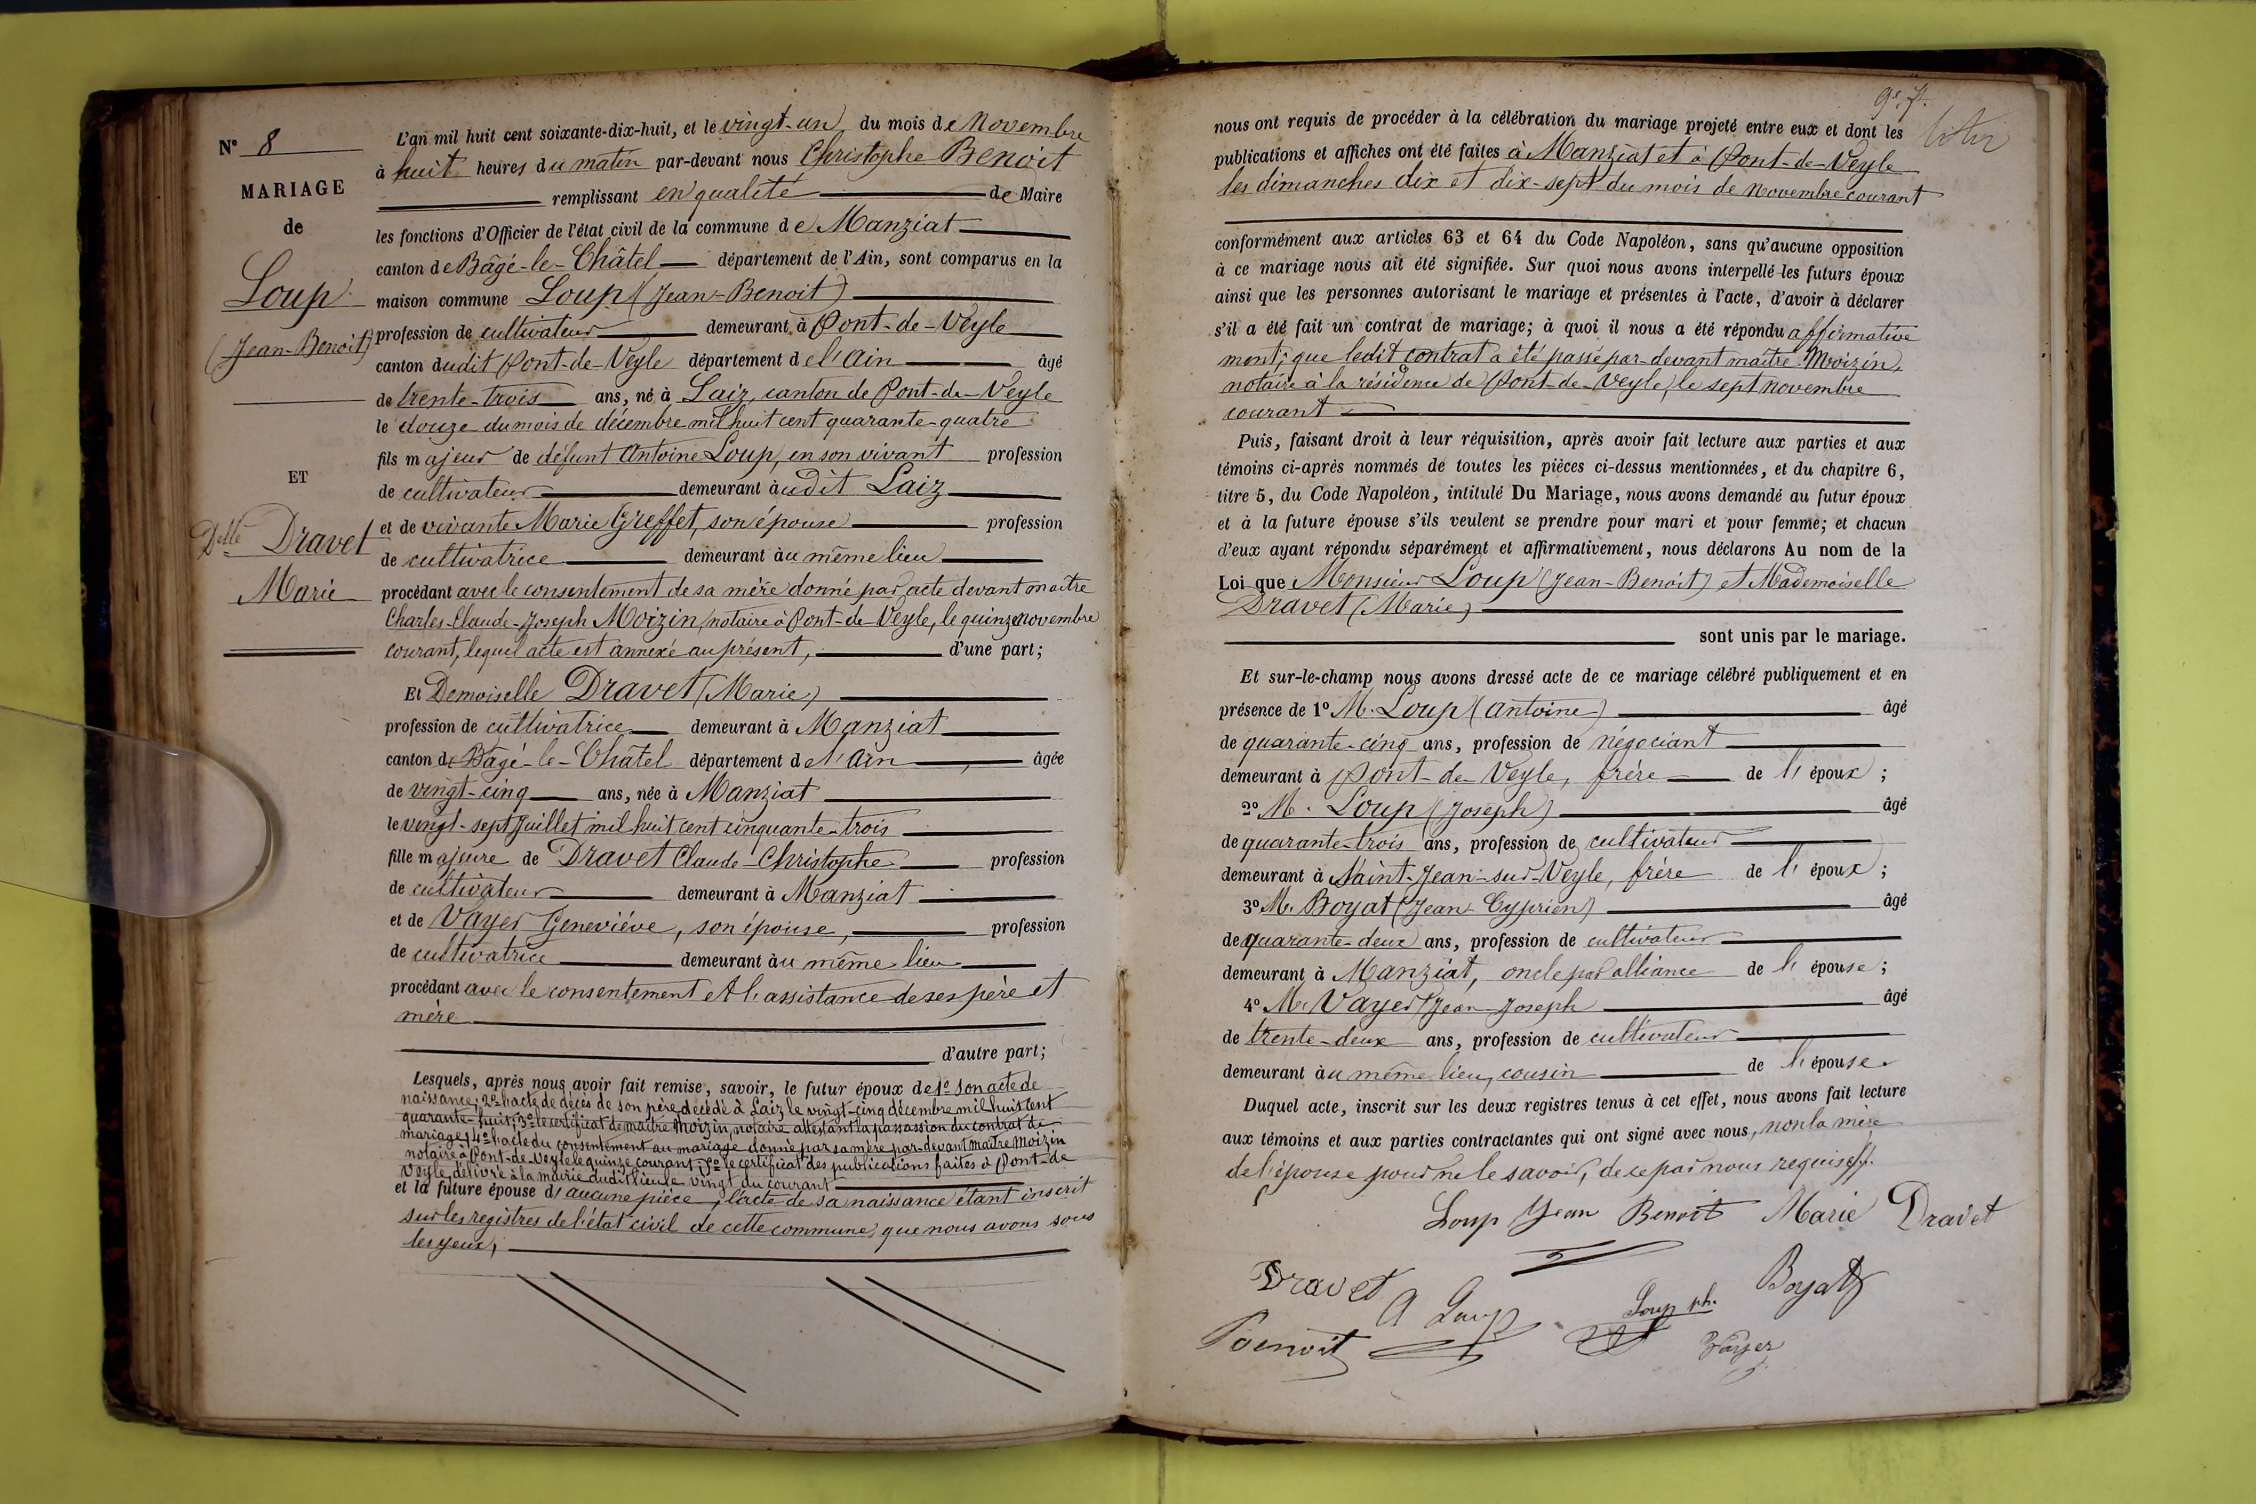 N° 8
MARIAGE
de
Loup
(Jean-Benoit)
ET
Delle Dravet
Marie
L'an mil huit cent soixante-dix-huit, et le vingt-un du mois de Novembre
à huit heures du matin par-devant nous Christophe Benoit
remplissant en qualité de Maire
les fonctions d'Officier de l'état civil de la commune de Manziat
canton de Bâgé-le-Châtel département de l'Ain, sont comparus en la
maison commune Loup (Jean-Benoit)
profession de cultivateur demeurant à Pont-de-Veyle
canton dudit Pont-de-Veyle département de l'Ain âgé
de trente-trois ans, né à Laiz, canton de Pont-de-Veyle
le douze du mois de décembre mil huit cent quarante-quatre
fils majeur de défunt Antoine Loup, en son vivant profession
de cultivateur demeurant àudit Laiz
et de vivante Marie Greffet, son épouse profession
de cultivatrice demeurant àu même lieu
procédant avec le consentement de sa mère donné par acte devant maître
Charles-Claude-Joseph Moizin, notaire à Pont-de-Veyle, le quinze novembre
courant, lequel acte est annexé au présent, d'une part;
Et Demoiselle Dravet (Marie)
profession de cultivatrice demeurant à Manziat
canton de Bâgé-le-Châtel département de l'Ain âgée
de vingt-cinq ans, née à Manziat
le vingt-sept Juillet mil huit cent cinquante-trois
fille majeure de Dravet Claude-Christophe profession
de cultivateur demeurant à Manziat
et de Vayer Geneviève, son épouse, profession
de cultivatrice demeurant àu même lieu
procédant avec le consentement et l'assistance de ses père et
mère
d'autre part;
Lesquels, après nous avoir fait remise, savoir, le futur époux de 1° son acte de
naissance; 2° l'acte de décès de son père décédé à Laiz le vingt-cinq décembre mil huit cent
quarante-huit; 3° le certificat de maître Moizin, notaire attestant la passassion du contrat de
mariage; 4° l'acte du consentement au mariage donné par sa mère par-devant maître Moizin
notaire à Pont-de-Veyle le quinze courant; 5° le certificat des publications faites à Pont-de
Veyle, délivré à la mairie dudit lieu le vingt du courant
et la future épouse d'aucune pièce, l'acte de sa naissance étant inscrit
sur les registres de l'état civil de cette commune, que nous avons sous
les yeux,
nous ont requis de procéder à la célébration du mariage projeté entre eux et dont les
publications et affiches ont été faites à Manziat et à Pont-de-Veyle
les dimanches dix et dix-sept du mois de novembre courant
conformément aux articles 63 et 64 du Code Napoléon, sans qu'aucune opposition
à ce mariage nous ait été signifiée. Sur quoi nous avons interpellé les futurs époux
ainsi que les personnes autorisant le mariage et présentes à l'acte, d'avoir à déclarer
s'il a été fait un contrat de mariage; à quoi il nous a été répondu affirmative
ment; que ledit contrat a été passé par-devant maître Moizin,
notaire à la résidence de Pont-de-Veyle, le sept novembre
courant
Puis, faisant droit à leur réquisition, après avoir fait lecture aux parties et aux
témoins ci-après nommés de toutes les pièces ci-dessus mentionnées, et du chapitre 6,
titre 5, du Code Napoléon, intitulé Du Mariage, nous avons demandé au futur époux
et à la future épouse s'ils veulent se prendre pour mari et pour femme; et chacun
d'eux ayant répondu séparément et affirmativement, nous déclarons Au nom de la
Loi que Monsieur Loup (Jean-Benoit) et Mademoiselle
Dravet (Marie)
sont unis par le mariage.
Et sur-le-champ nous avons dressé acte de ce mariage célébré publiquement et en
présence de 1° M. Loup (Antoine) âgé
de quarante-cinq ans, profession de négociant
demeurant à Pont-de-Veyle, frère de l'époux;
2° M. Loup (Joseph) âgé
de quarante-trois ans, profession de cultivateur
demeurant à Saint-Jean-sur-Veyle, frère de l'époux;
3° M. Boyat (Jean-Cyprien) âgé
de quarante-deux ans, profession de cultivateur
demeurant à Manziat, oncle par alliance de l'épouse;
4° M. Vayer Jean-Joseph âgé
de trente-deux ans, profession de cultivateur
demeurant àu même lieu, cousin de l'épouse.
Duquel acte, inscrit sur les deux registres tenus à cet effet, nous avons fait lecture
aux témoins et aux parties contractantes qui ont signé avec nous, non la mère
de l'épouse pour ne le savoir, de ce par nous requise.
Loup Jean Benoit Marie Dravet
Dravet A Loup Loup ph. Boyat
Benoit Vayer